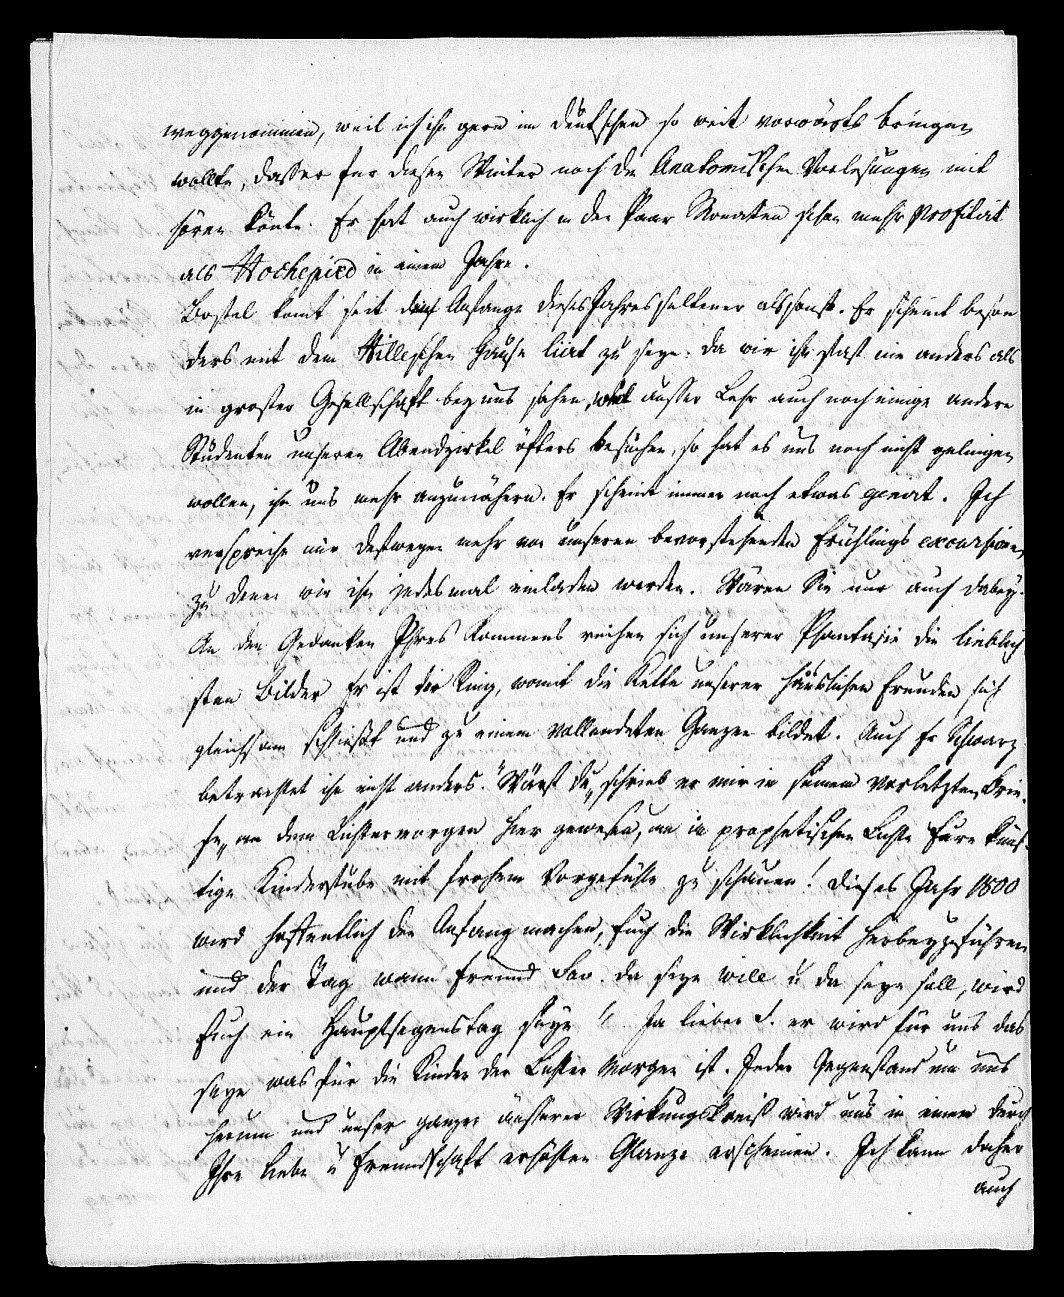 weggenommen, weil ich ihn gern im deutschen so weit vorwärts bringen
wollte, dass er fur diesen Winter noch die Anatomischen Vorlesungen mit
hören könte. Er hat auch wirklich in den Paar Monaten schon mehr profitirt
als Hochepied in einem Jahre.
Bostel komt seit dem Anfange dieses Jahres seltener als sonst. Er scheint beson
ders mit dem Hilleschen Hause liirt zu seyn. Da wir ihn fast nie anders als
in groser Gesellschaft bey uns sehen, weil ausser Lehr auch noch einige andere
Studenten unseren Abendzirkel öfters besuchen, so hat es uns noch nicht gelingen
wollen, ihn uns mehr anzunähern. Er scheint immer noch etwas genirt. Ich
verspreche mir deswegen mehr von unseren bevorstehenden Frühlings excursionen
zu denen wir ihn jedesmal einladen werden. Wären Sie nur auch dabey.
An den Gedanken Ihres Kommens reihen sich unserer Phantasie die lieblich
sten Bilder Er ist der Ring, womit die Kette unserer häuslichen Freuden sich
gleichsam schliesst und zu einem vollendeten Ganzen bildet. Auch Fr Schwarz
betrachtet ihn nicht anders. "Wärst du, schrieb er mir in seinem vorletzten Brie-
fe, an dem Lichtermorgen hier gewesen, um in prophetischem Lichte Eure künf-
tige Kinderstube mit frohem Vorgefühle zu schauen! Dieses Jahr 1800
wird hoffentlich den Anfang machen, Euch die Wirklichkeit herbeyzuführen
und der Tag wann Freund da seyn will u da seyn soll, wird
Euch ein Hauptsegenstag seyn" Ja lieber S. er wird für uns das
seyn was für die Kinder der Lichter Morgen ist. Jeder Gegenstand um uns
herum und unser ganzer äusserer Wirkungskreiß wird uns in einem durch
Ihre Liebe u Freundschaft erhöhten Glanze erscheinen. Ich kann daher
auch